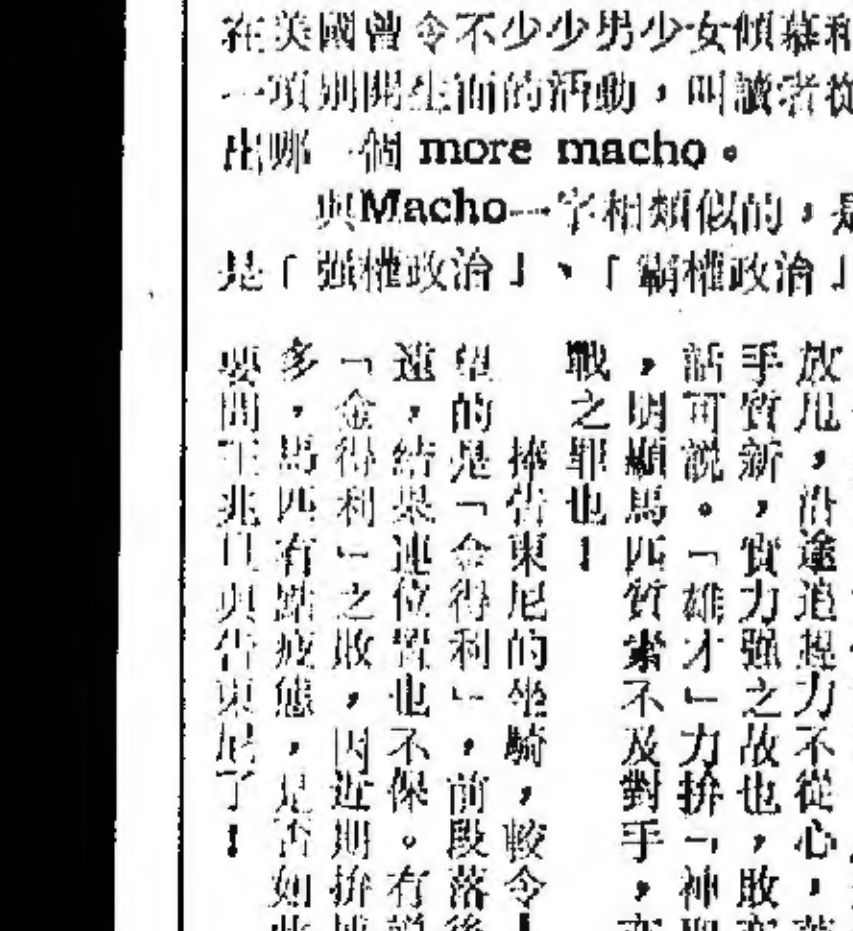 在美國曾令不少少男少女傾慕和
一項別開生面的活動，叫讀者從
出哪一個 more macho。
與Macho一字相類似的，是
是「強權政治」、「霸權政治」
放甩，沿途追趕力不從心，
手質新，實力強之故也，敗
話可說。「雄才」力拚「神
，明顯馬匹質素不及對手，
戰之罪也！
捧告東尼的坐騎，較令
望的是「金得利」，前段落後
遠，結果連位置也不保。有説
「金得利」之敗，因近期拚搏
多，馬匹有點疲態，是否如此
要問王兆旦與告東尼了！